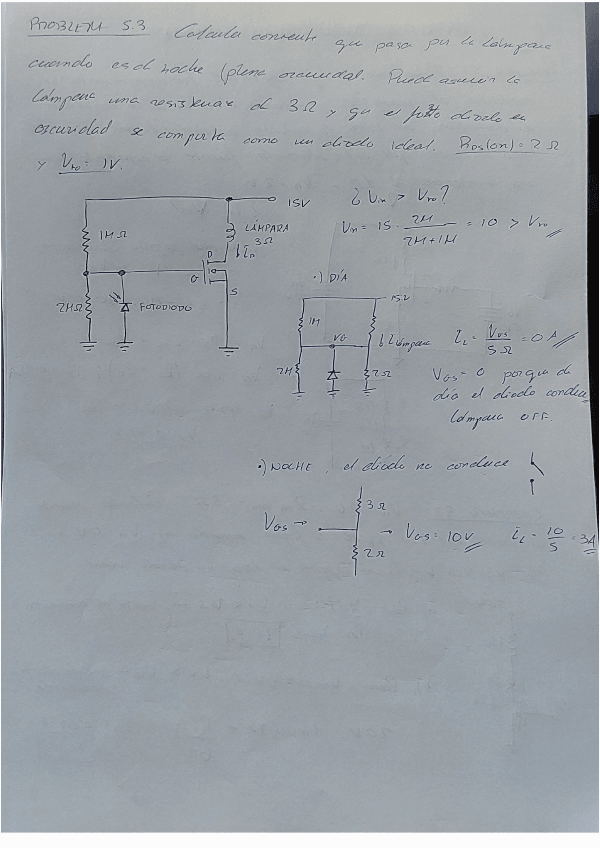 PROBLEM 5.3 Calcula corriente que pasa por la lámpara
cuando es de noche (plena oscuridad. Puede asumir la
lámpara una resistencia de 3Ω y que el foto diodo en
oscuridad se comporta como un diodo ideal. RDS(on) = 2Ω
y VTO = 1V.
15V
¿ Vin > VTO?
1MΩ
LÁMPARA
3Ω
Vin = 15 · 2M / 2M+1M = 10 > VTO
D
G
S
·) DÍA
2MΩ
FOTODIODO
15V
1M
VG
Lámpara
IL = VGS / 5Ω = 0 A
2M
2Ω
VGS = 0 porque de
día el diodo conduce
lámpara OFF.
·) NOCHE, el diodo no conduce
3Ω
VGS →
→ VGS = 10V
IL = 10 / 5 = 3A
2Ω